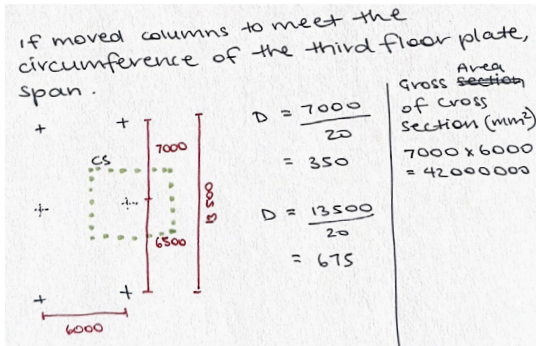 if moved columns to meet the
circumference of the third floor plate,
span.
CS
7000
6500
13500
6000
D = 7000
20
= 350
D = 13500
20
= 675
Gross section Area
of cross
section (mm²)
7000 x 6000
= 42000000